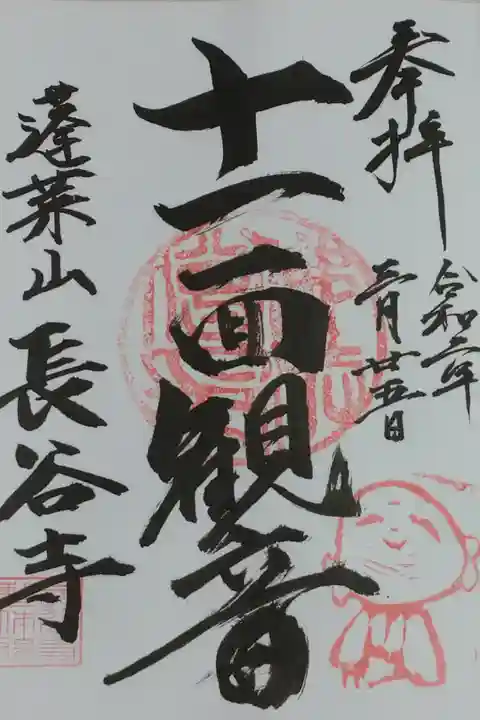 奉拝
令和二年
三月廿五日
十一面観音
蓬莱山 長谷寺